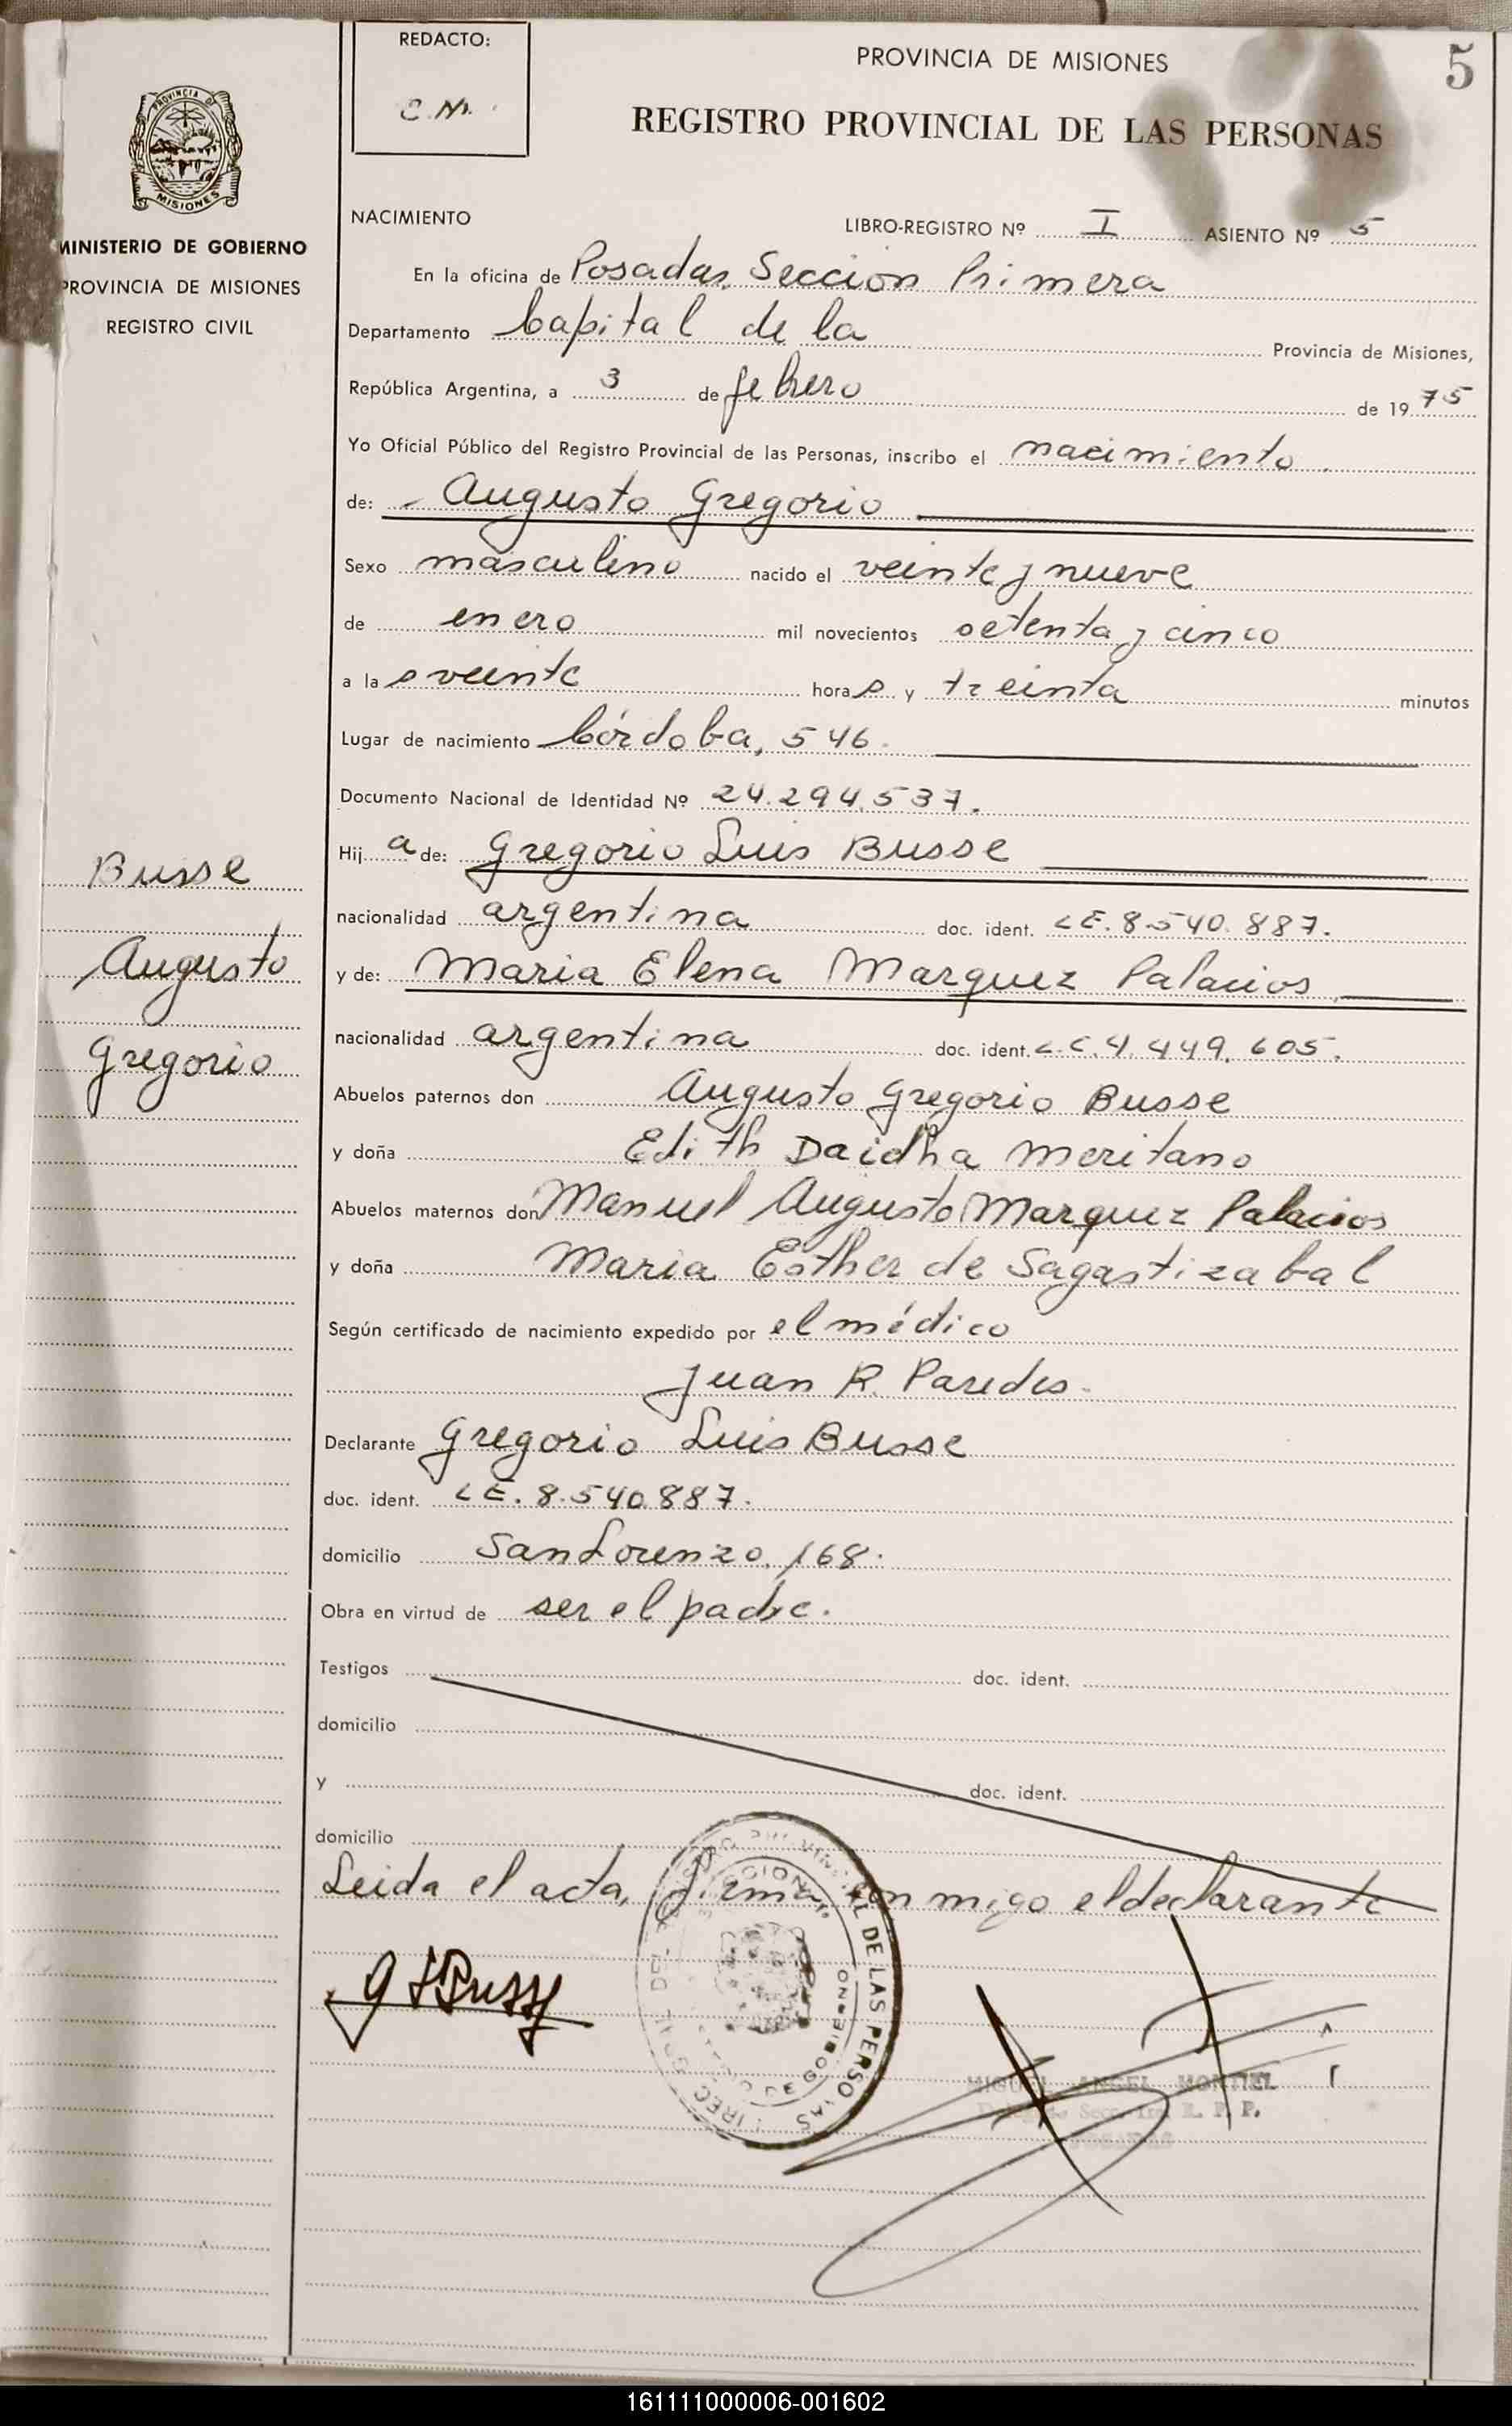 REDACTO:
C. M.
PROVINCIA DE MISIONES
5
REGISTRO PROVINCIAL DE LAS PERSONAS
PROVINCIA D
MISIONES
MINISTERIO DE GOBIERNO
PROVINCIA DE MISIONES
REGISTRO CIVIL
NACIMIENTO
LIBRO-REGISTRO Nº I ASIENTO Nº 5
En la oficina de Posadas, Sección Primera
Departamento Capital de la Provincia de Misiones,
República Argentina, a 3 de febrero de 1975
Yo Oficial Público del Registro Provincial de las Personas, inscribo el nacimiento
de: Augusto Gregorio
Sexo masculino nacido el veinte y nueve
de enero mil novecientos setenta y cinco
a las veinte horas y treinta minutos
Lugar de nacimiento Córdoba, 546.
Documento Nacional de Identidad Nº 24.294.537.
Hij a de: Gregorio Luis Busse
nacionalidad argentina doc. ident. L.E. 8.540.887.
y de: Maria Elena Marquez Palacios
nacionalidad argentina doc. ident. L.C. 4.449.605.
Abuelos paternos don Augusto Gregorio Busse
y doña Edith Daidha Meritano
Abuelos maternos don Manuel Augusto Marquez Palacios
y doña Maria Esther de Sagastizabal
Según certificado de nacimiento expedido por el médico
Juan R. Paredes.
Declarante Gregorio Luis Busse
doc. ident. L.E. 8.540.887.
domicilio San Lorenzo, 168.
Obra en virtud de ser el padre.
Testigos doc. ident.
domicilio
y doc. ident.
domicilio
Leida el acta, firma conmigo el declarante
Busse
Augusto
Gregorio
DE LAS PERSONAS
GOBIERNO
MIGUEL ANGEL MONTIEL
R. P. P.
POSADAS
161111000006-001602